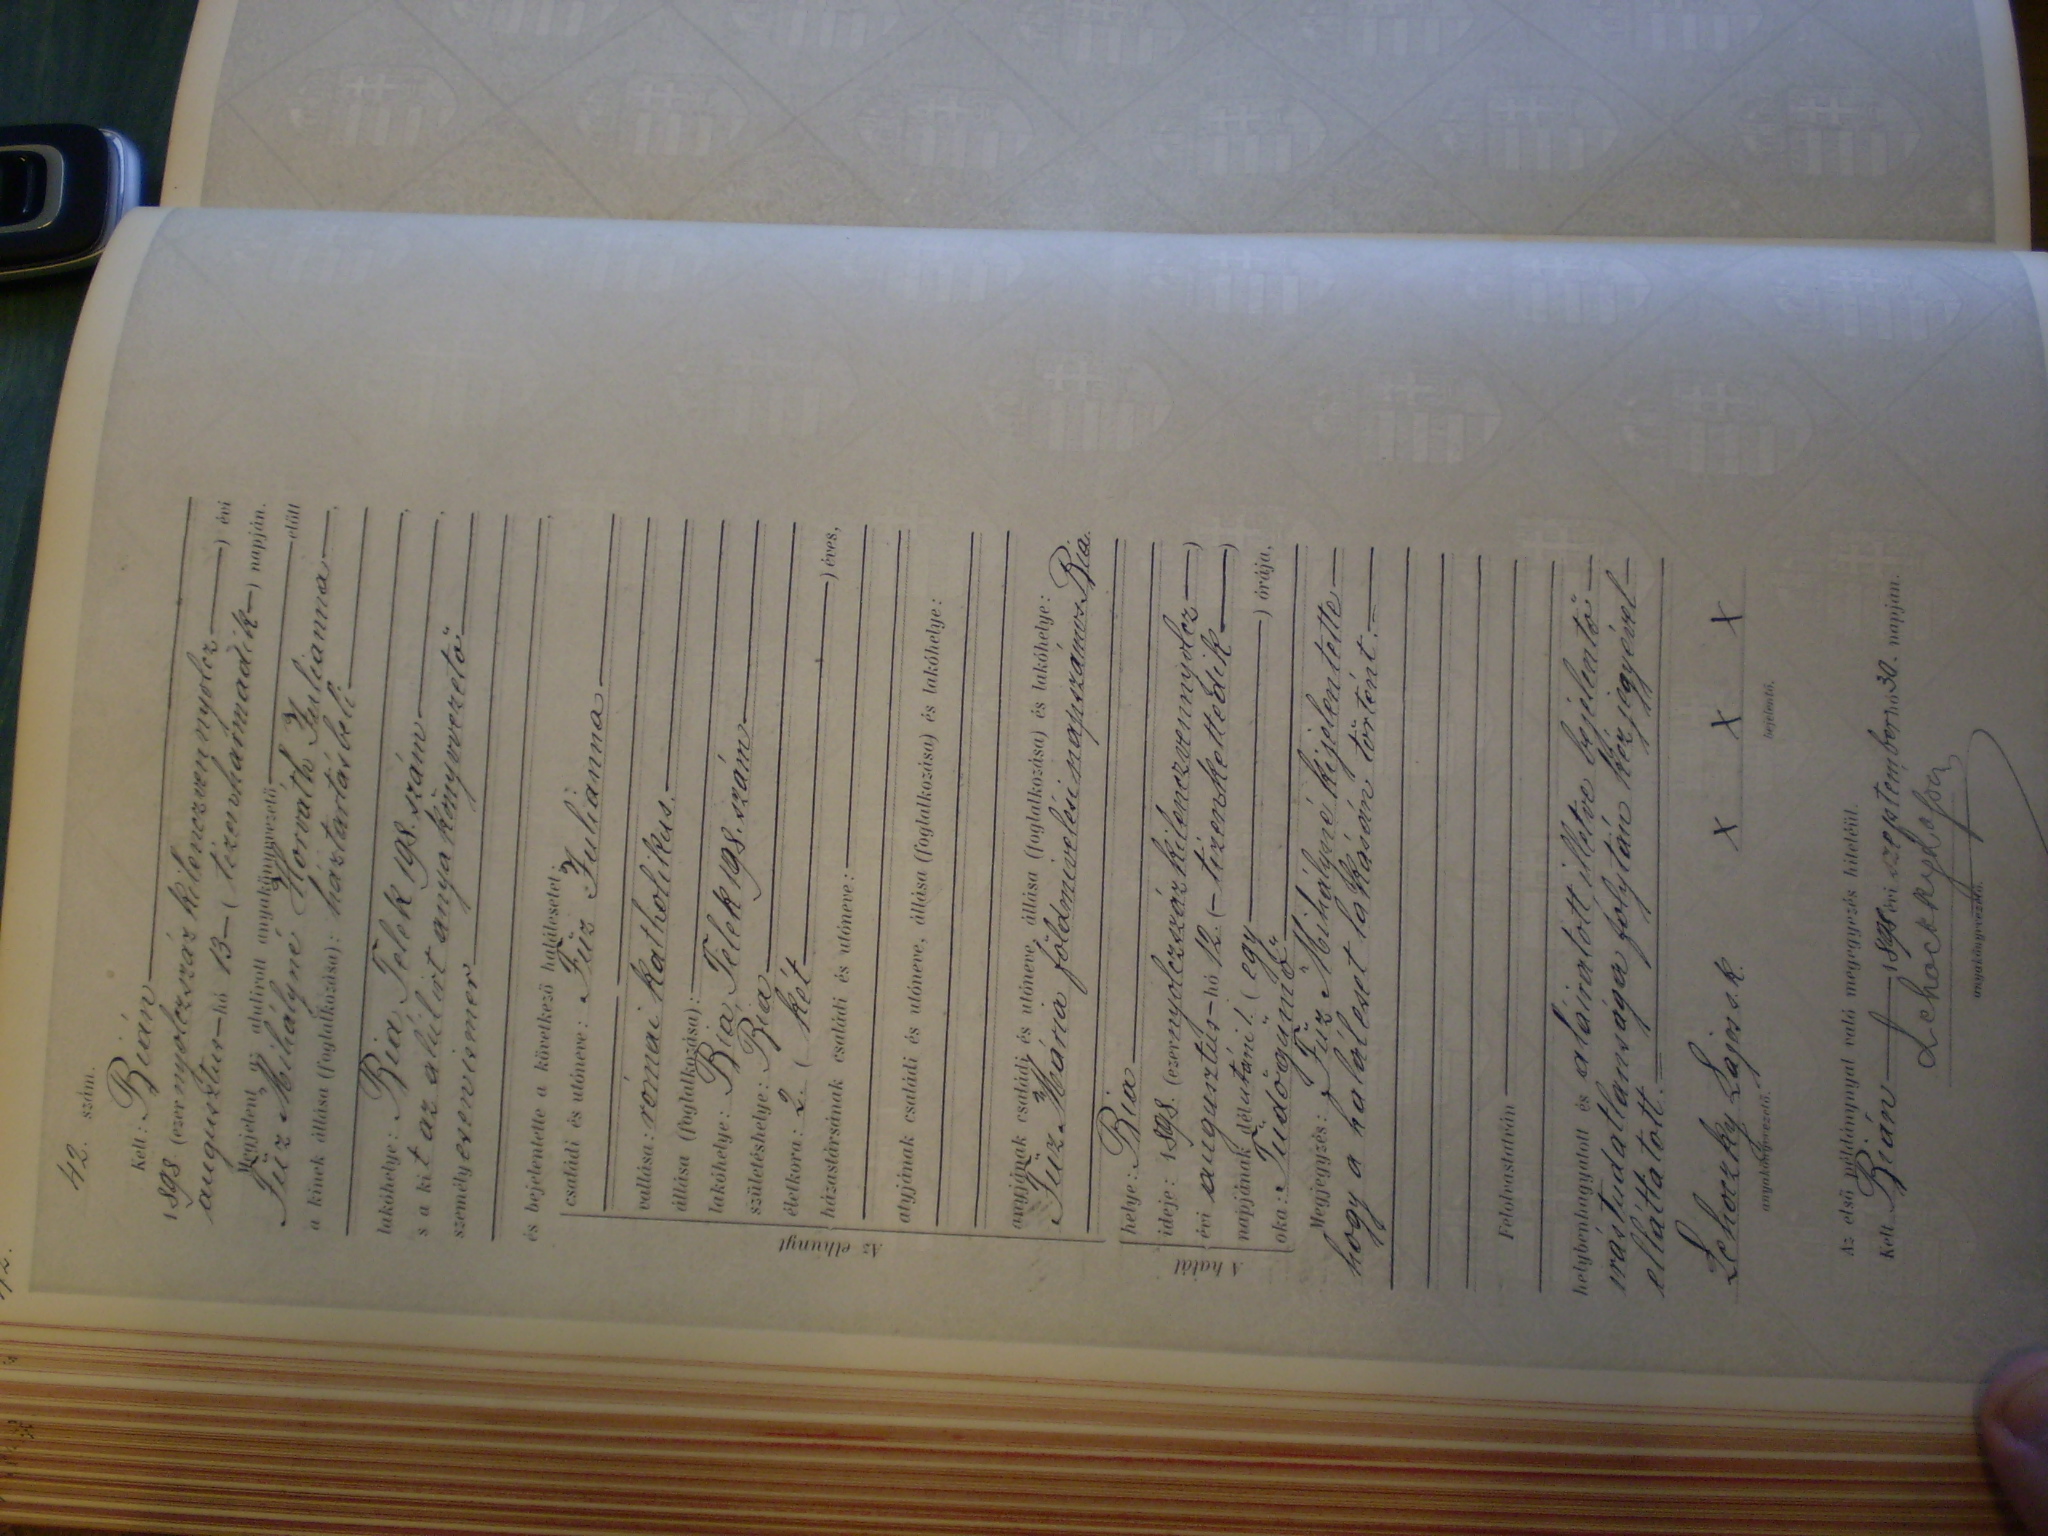 42. szám.
Kelt: Bián
1898 (ezernyolczszáz kilenczvennyolcz) évi
augusztus hó 13 (tizenharmadik) napján.
Megjelent az alulirott anyakönyvvezető előtt
Füz Mihályné Horváth Julianna,
a kinek állása (foglalkozása): háztartásbeli
lakóhelye: Bia Telek 198. szám,
s a kit az alúlirt anyakönyvvezető,
személyesen ismer
és bejelentette a következő halálesetet:
Az elhunyt
családi és utóneve: Füz Julianna
vallása: római katholikus.
állása (foglalkozása):
lakóhelye: Bia, Telek 198. szám
születéshelye: Bia
életkora: 2. (két) éves,
házastársának családi és utóneve:
atyjának családi és utóneve, állása (foglalkozása) és lakóhelye:
anyjának családi és utóneve, állása (foglalkozása) és lakóhelye:
Füz Mária földmivelési napszámos Bia.
A halál
helye: Bia
ideje: 1898. (ezernyolczszázkilenczvennyolcz)
évi augusztus hó 12. (tizenkettedik)
napjának délutáni 1. (egy) órája,
oka: Tüdőgümő
Megjegyzés: Füz Mihályné kijelentette
hogy a haláleset lakásán történt.
Felolvastatván
helybenhagyatott és aláiratott illetve bejelentő
irástudatlansága folytán kézjegyével
elláttatott.
Lehoczky Lajos s. k. x x x
anyakönyvvezető. bejelentő.
Az első példánynyal való megegyezés hiteléül.
Kelt Bián 1898 évi szeptember hó 30. napján.
Lehoczky Lajos
anyakönyvvezető.